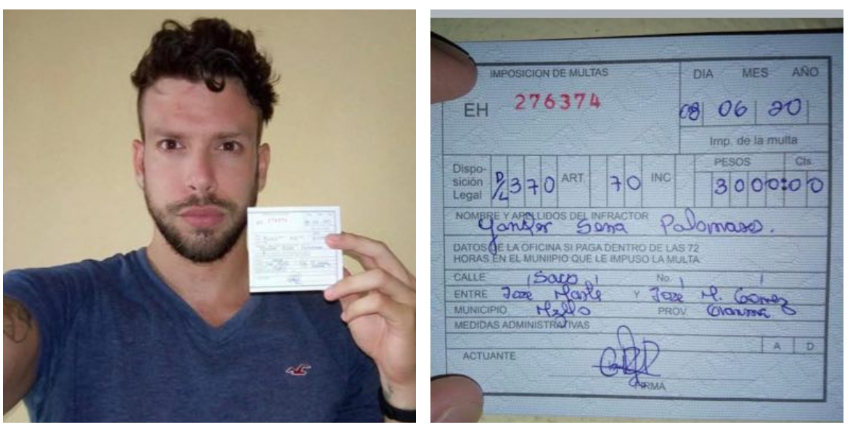 IMPOSICION DE MULTAS
DIA MES AÑO
EH 276374
08 06 20
Imp. de la multa
Disposición Legal D/L 370 ART. 70 INC
PESOS Cts.
3000:00
NOMBRE Y APELLIDOS DEL INFRACTOR
Sena Palomares.
DATOS DE LA OFICINA SI PAGA DENTRO DE LAS 72
HORAS EN EL MUNIIPIO QUE LE IMPUSO LA MULTA
CALLE No.
ENTRE Jose Y Jose M. Gomez
MUNICIPIO PROV. Granma
MEDIDAS ADMINISTRATIVAS
A D
ACTUANTE
FIRMA